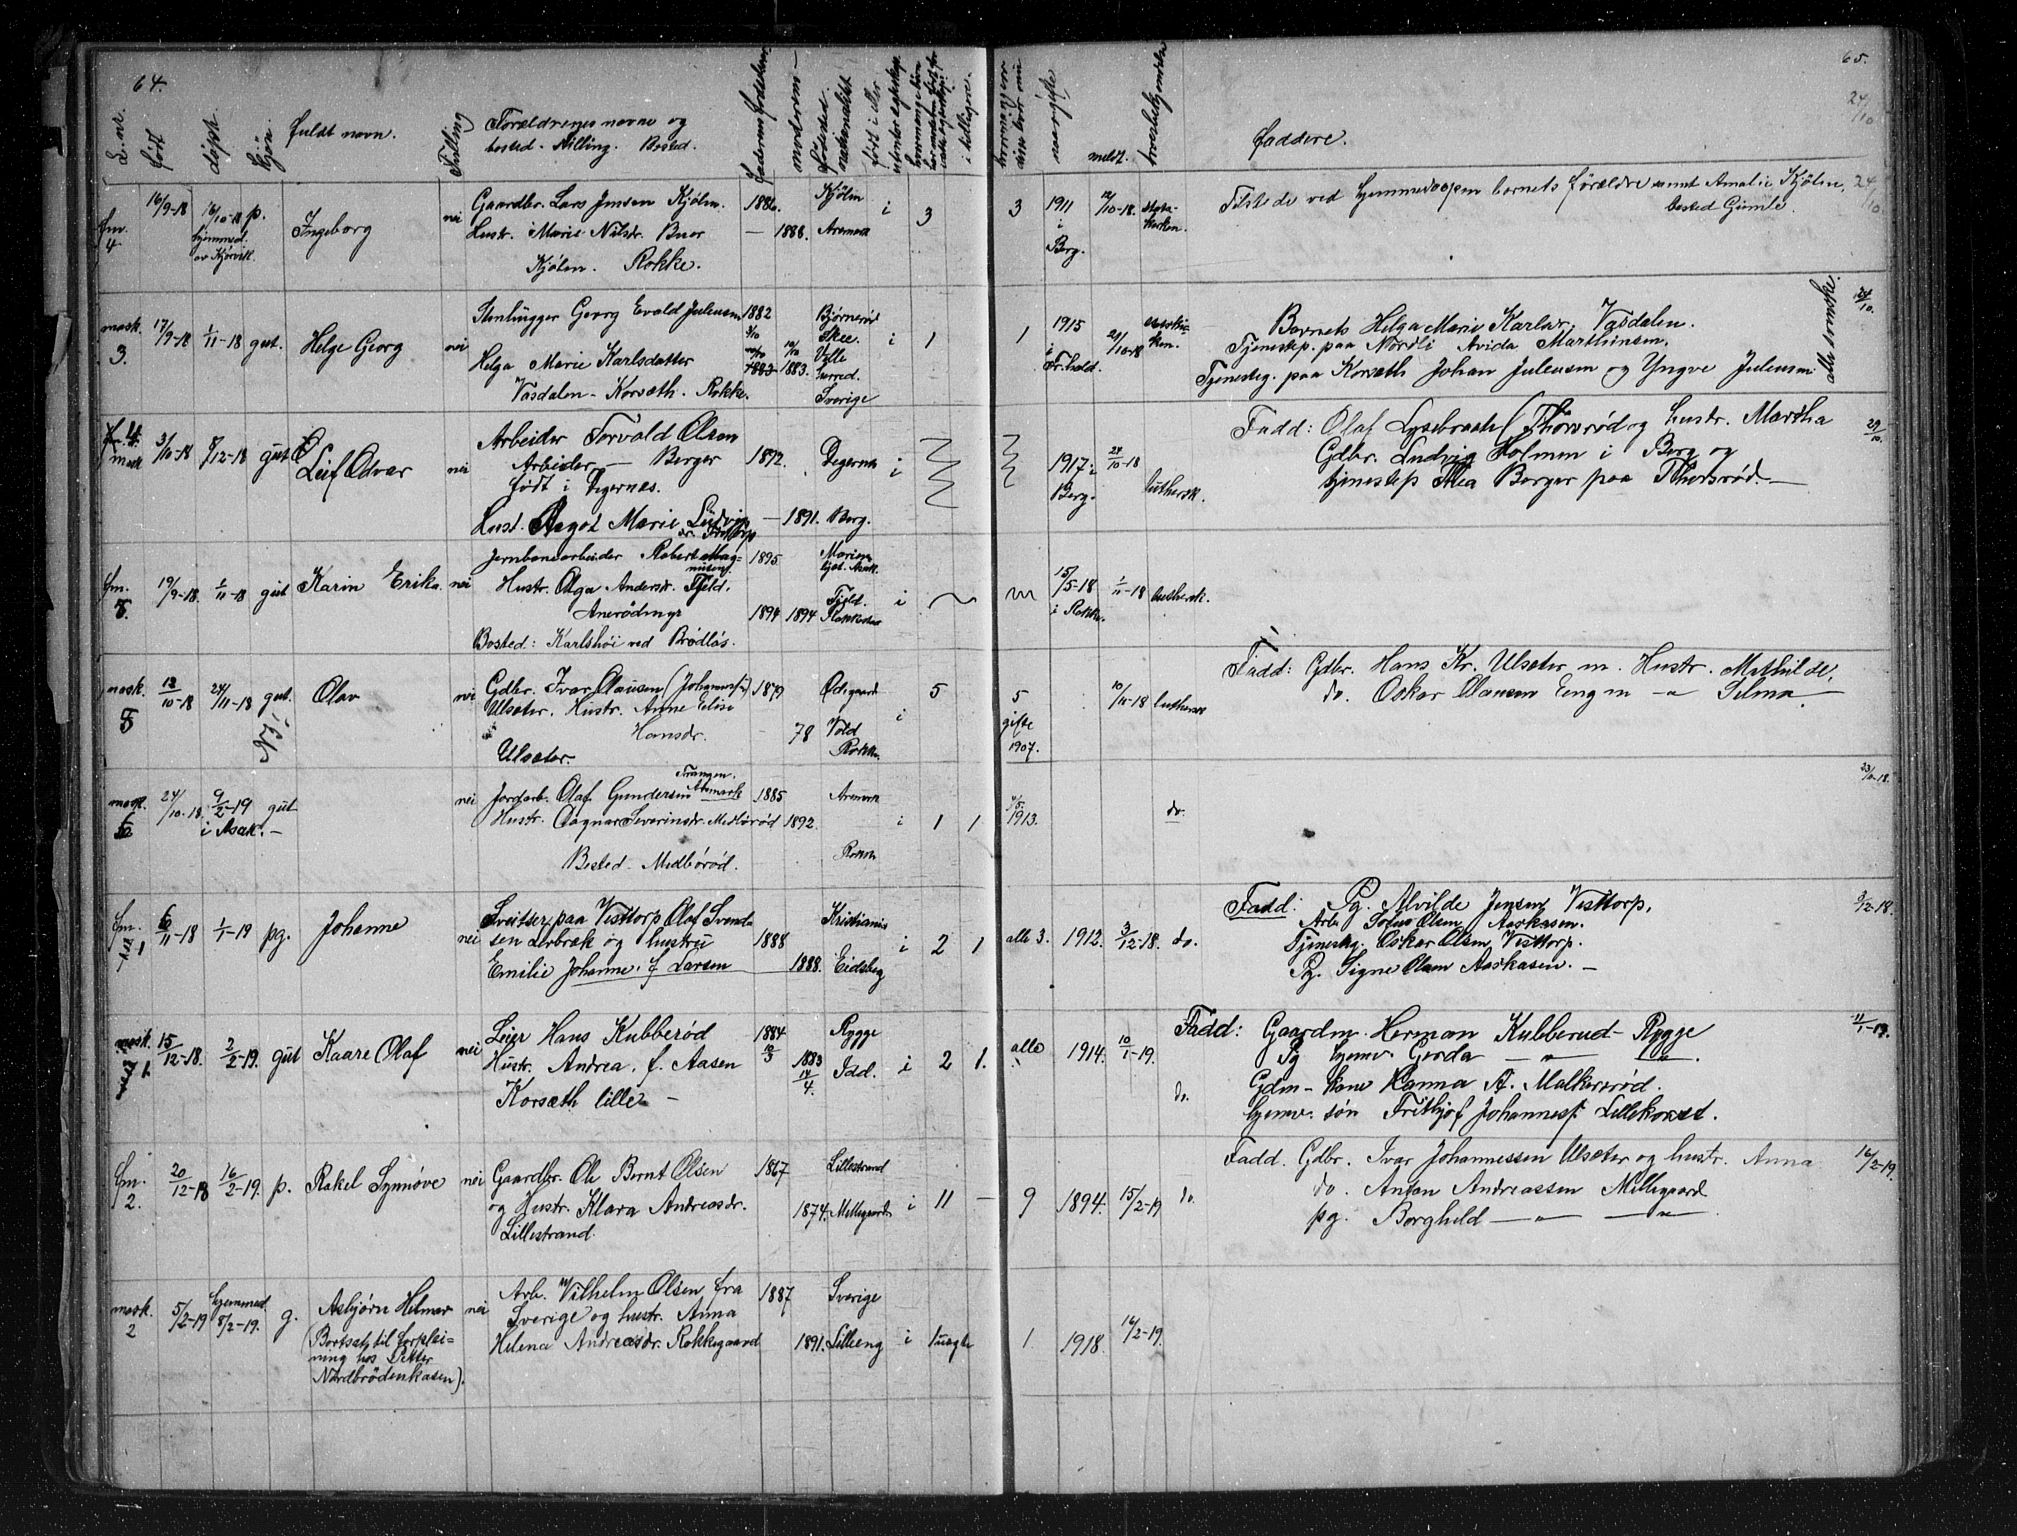 64.
65.
L. nr.
født
døpt.
kjøn.
fuldt navn.
Tvilling
Forældrenes navne og
bosted - stilling. Bosted.
faderens fødselsaar
moderens —
fødested.
nationalitet
født i eller
utenfor egteskap
i tidligere.
naar gifte
meldt.
trosbekjendelse
Faddere.
24/10.
fm. 4
16/9-18
16/10-18
hjemmed.
av Kjørvik.
p.
Ingeborg
nei
Gaardbr. Lars Jensen Kjølen.
Hustr. Marie Nilsdr. Buer
Kjølen. Rokke.
1886.
— 1888.
Kjølen
Aremark
i
3
3
1911
i
Berg.
12/10-18.
stats-
kirken.
Tilstede ved hjemmedaapen barnets forældre samt Amalie Kjølen,
bosted Gimle.
24/10.
mask. 3.
17/9-18
1/11-18
gut.
Helge Georg
nei
Stenhugger Georg Evald Juleusen
Helga Marie Karlsdatter
Vasdalen - Korsæth - Rokke.
1882
1883.
Bjørnerød
Skee.
herred.
Sverige
i
1
1
1915
i
Fr.hald.
21/10-18
Barnets Helga Marie Karlsdr, Vasdalen.
Tjenestep. paa Nordli Avida Marthinsen.
Tjenesteg. paa Korsæth Johan Juleusen og Yngve Juleusen
alle svenske.
24/10.
4.
mask
3/10-18
8/12-18
gut
Leif Odvar
nei
Arbeider Torvald Olsen
Arbeider — Berger
født i Degernes.
Hust. Aagot Marie Ludvigs
1872.
— 1891.
Degernes
Berg.
i
1917 i
Berg.
24/10-18
luthersk.
Fadd: Olaf Lysebraate, Thorsrød og hustr. Martha
Gdbr. Ludvig Holmen i Berg og
tjenestep Thea Berger paa Thorsrød. —
29/10.
fm. 5.
19/9-18.
1/11-18
gut
Karin Erika.
nei
Jernbanearbeider Robert Mag-
nusen
Hustr. Olga Andersdr. Fjeld.
Anerødmyr
Bosted: Karlshøi ved Brødløs.
1895
1894 1894
Fjeld.
i
15/5-18
i Rokke.
1/11-18
luthersk.
mask. 5
13/10-18
24/11-18
gut.
NB!
Olav
nei
Gdbr. Ivar Olausen (Johannesen)
Ulsæter. Hustr. Anne Elise
Hansdr.
Ulsæter.
1879
78
Ødegaard
Vold
Rokke.
i
5
5
gifte
1907.
10/11-18
luthersk
Fadd: Gdbr. Hans Kr. Ulsæter m. Hustr. Mathilde,
do. Oskar Olausen Eng m — " Selma.
mask. 6
24/10.18.
9/2-19
i Asak. —
gut
nei
Jordarb. Olaf Gundersen
Hustr. Dagnar Severinsdr. Medbørød
Bosted - Medbørød.
1885
1892.
Aremark
Rokke
i
1
1
4/5.
1913.
do.
23/11-18.
fm. 1
6/11-18
1/1-19
pg.
Johanne
nei
Sveitser paa Visttorp Olaf Svend-
sen Lerbræk og hustru
Emilie Johanne. f Larsen
1888
1888.
Kristiania
Eidsberg
i
2
1
alle 3.
1912.
3/12-18.
do.
Fadd: Pg. Alvilde Jensen, Visttorp.
Arb. Sofus Olsen, Aaskasen.
Tjenestg. Oskar Olsen, Visttorp.
Pg. Signe Olsen Aaskasen. —
3/12-18.
mask. 1
15/12-18.
2/2-19.
gut
Kaare Olaf
nei
Leier Hans Kubberød
Hustr. Andrea. f. Aasen
Korsæth lille —
1884
12/3
1883
14/4.
Rygge
Idd.
i
2
1.
alle
1914.
10/1-19.
do.
Fadd: Gaardm. Herman Kubberud - Rygge
Pg hjemv. Gerda — " — "
Gdm-kone Hanna A. Malkersrød.
hjemv. søn Frithjof Johannesf. Lillekorset.
11/1-19.
fm. 2.
20/12-18
16/2-19.
p.
Rakel Synnøve
nei
Gaardbr. Ole Bernt Olsen
og Hustr. Klara Andreasdr.
Lillestrand
1867
1874.
Lillestrand
Millegaard
i
11
—
9
1894.
15/2-19
do
Fadd. Gdbr. Ivar Johannessen Ulsæter og hustr. Anna
do. Anton Andreassen Millegaard
pg. Borghild — " — "
16/2-19.
mask. 2
5/2-19
hjemmed
8/2-19.
g.
Asbjørn Helmar
(Bortsatt til forplei-
ning hos Petter
Nordbrødenkasen).
nei
Arb. Vilhelm Olsen fra
Sverige og hustr. Anna
Helena Andreasdr. Rokkegaard
1887
1891.
Sverige
Lilleeng
i
1 uegte
1
1918.
16/2-19.